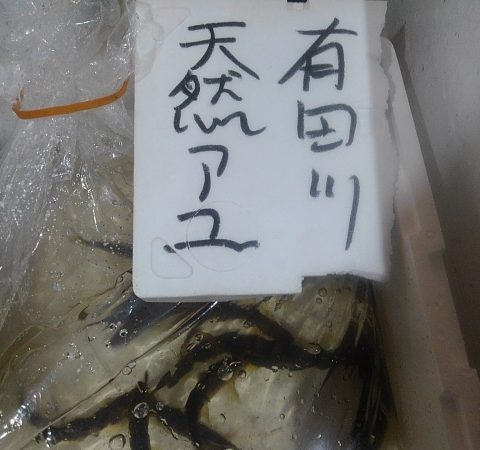 有田川
天然アユ